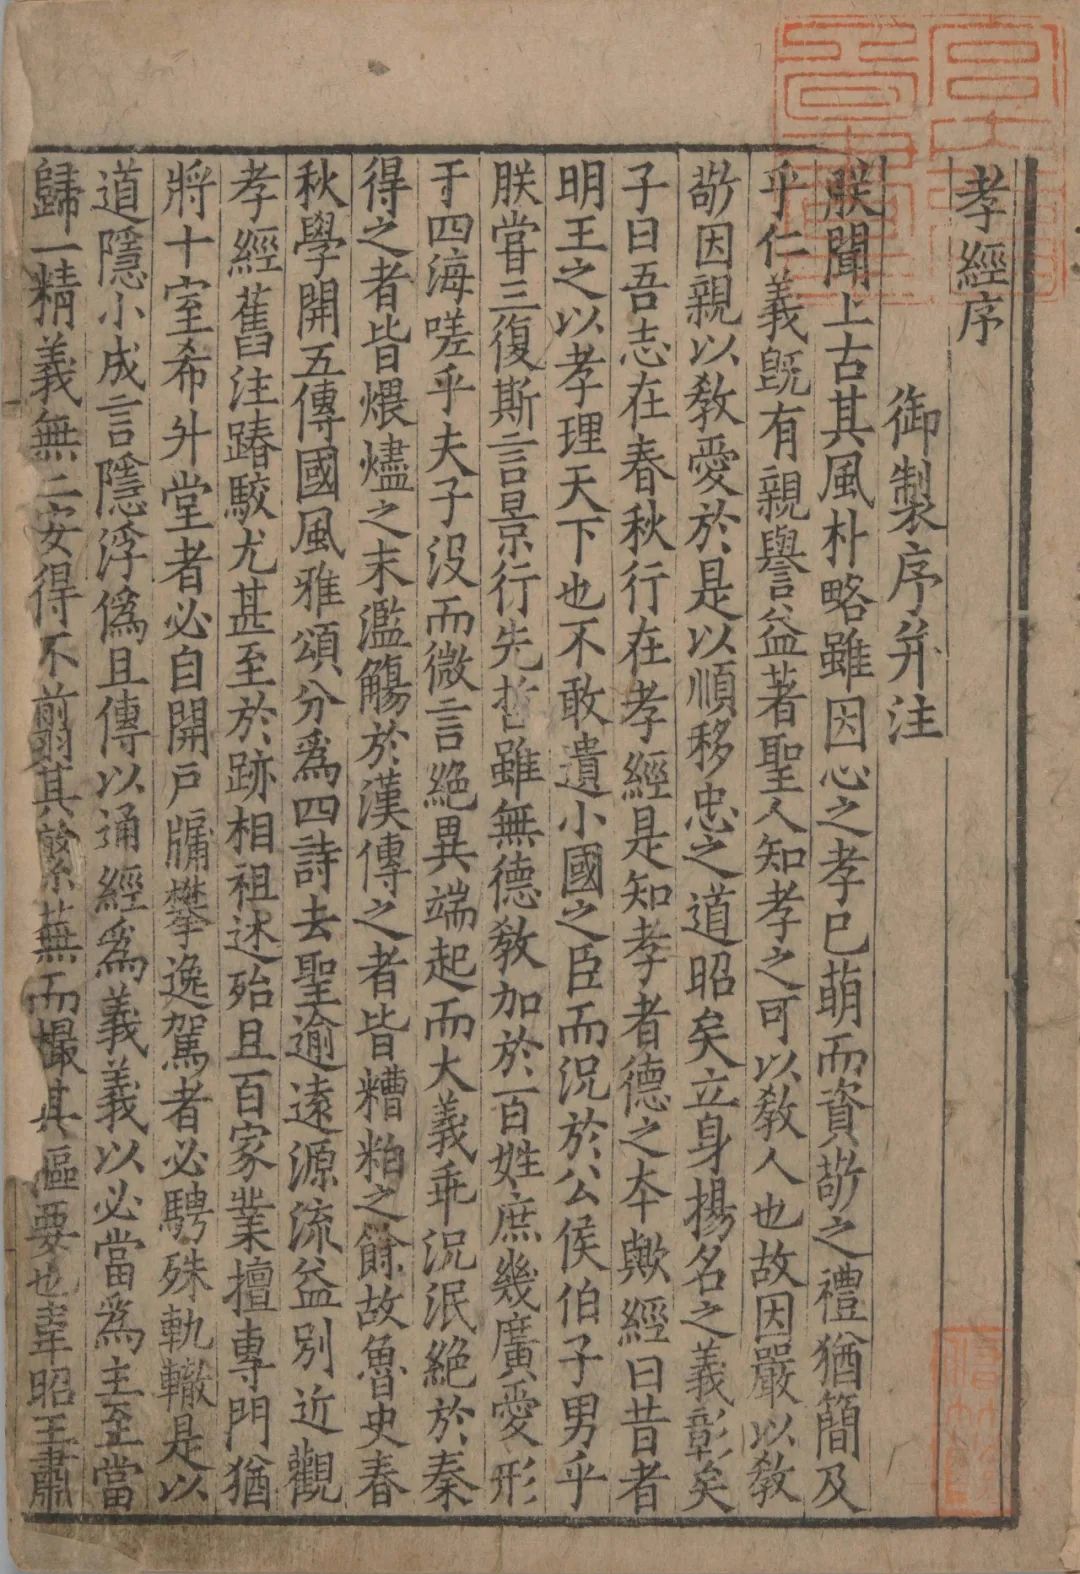 孝經序
御製序并注
朕聞上古其風朴略雖因心之孝已萌而資敬之禮猶簡及
乎仁義旣有親譽益著聖人知孝之可以敎人也故因嚴以敎
敬因親以敎愛於是以順移忠之道昭矣立身揚名之義彰矣
子曰吾志在春秋行在孝經是知孝者德之夲歟經曰昔者
明王之以孝理天下也不敢遺小國之臣而況於公侯伯子男乎
朕嘗三復斯言景行先哲雖無德敎加於百姓庶幾廣愛形
于四海嗟乎夫子沒而微言絕異端起而大義乖況泯絕於秦
得之者皆煨燼之末濫觴於漢傳之者皆糟粕之餘故魯史春
秋學開五傳國風雅頌分爲四詩去聖逾遠源流益別近觀
孝經舊注踳駮尤甚至於跡相祖述殆且百家業擅專門猶
將十室希升堂者必自開戶牖攀逸駕者必騁殊軌轍是以
道隱小成言隱浮僞且傳以通經爲義義以必當爲主至當
歸一精義無二安得不翦其繁蕪而撮其樞要也韋昭王肅